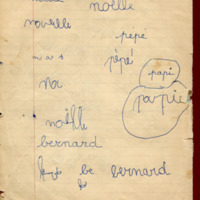 noëlle
nouvelle
pepe
mas pépé
na papi
papie
noëlle
bernard
be bernard